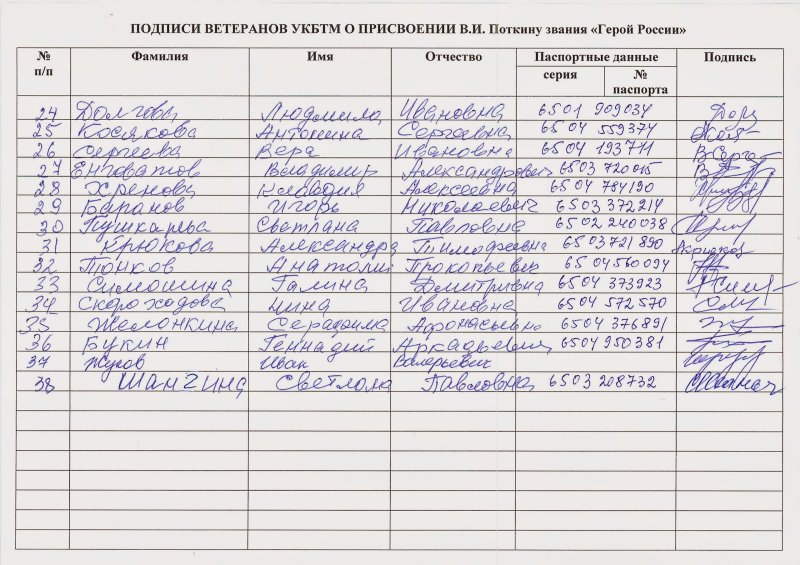 ПОДПИСИ ВЕТЕРАНОВ УКБТМ О ПРИСВОЕНИИ В.И. Поткину звания «Герой России»
№ п/п Фамилия Имя Отчество Паспортные данные Подпись
серия № паспорта
24 Долгова Людмила Ивановна 6501 909034
25 Косякова Антонина Сергеевна 6504 559374
26 Сергеева Вера Ивановна 6504 193711
27 Енговатов Владимир Александрович 6503 720015
28 Хренова Клавдия Алексеевна 6504 784190
29 Баранов Игорь Николаевич 6503 372214
30 Светлана Павловна 6502 240038
31 Крюкова Александра Тимофеевна 6503 721890
32 Тюнков Анатолий Прокопьевич 6504 560094
33 Симошина Галина Дмитриевна 6504 373923
34 Скороходова Нина Ивановна 6504 572570
35 Желонкина Серафима Афонасьевна 6504 376891
36 Букин Геннадий Аркадьевич 6504 950381
37 Жуков Иван Валерьевич
38 Шангина Светлана Павловна 6503 208732